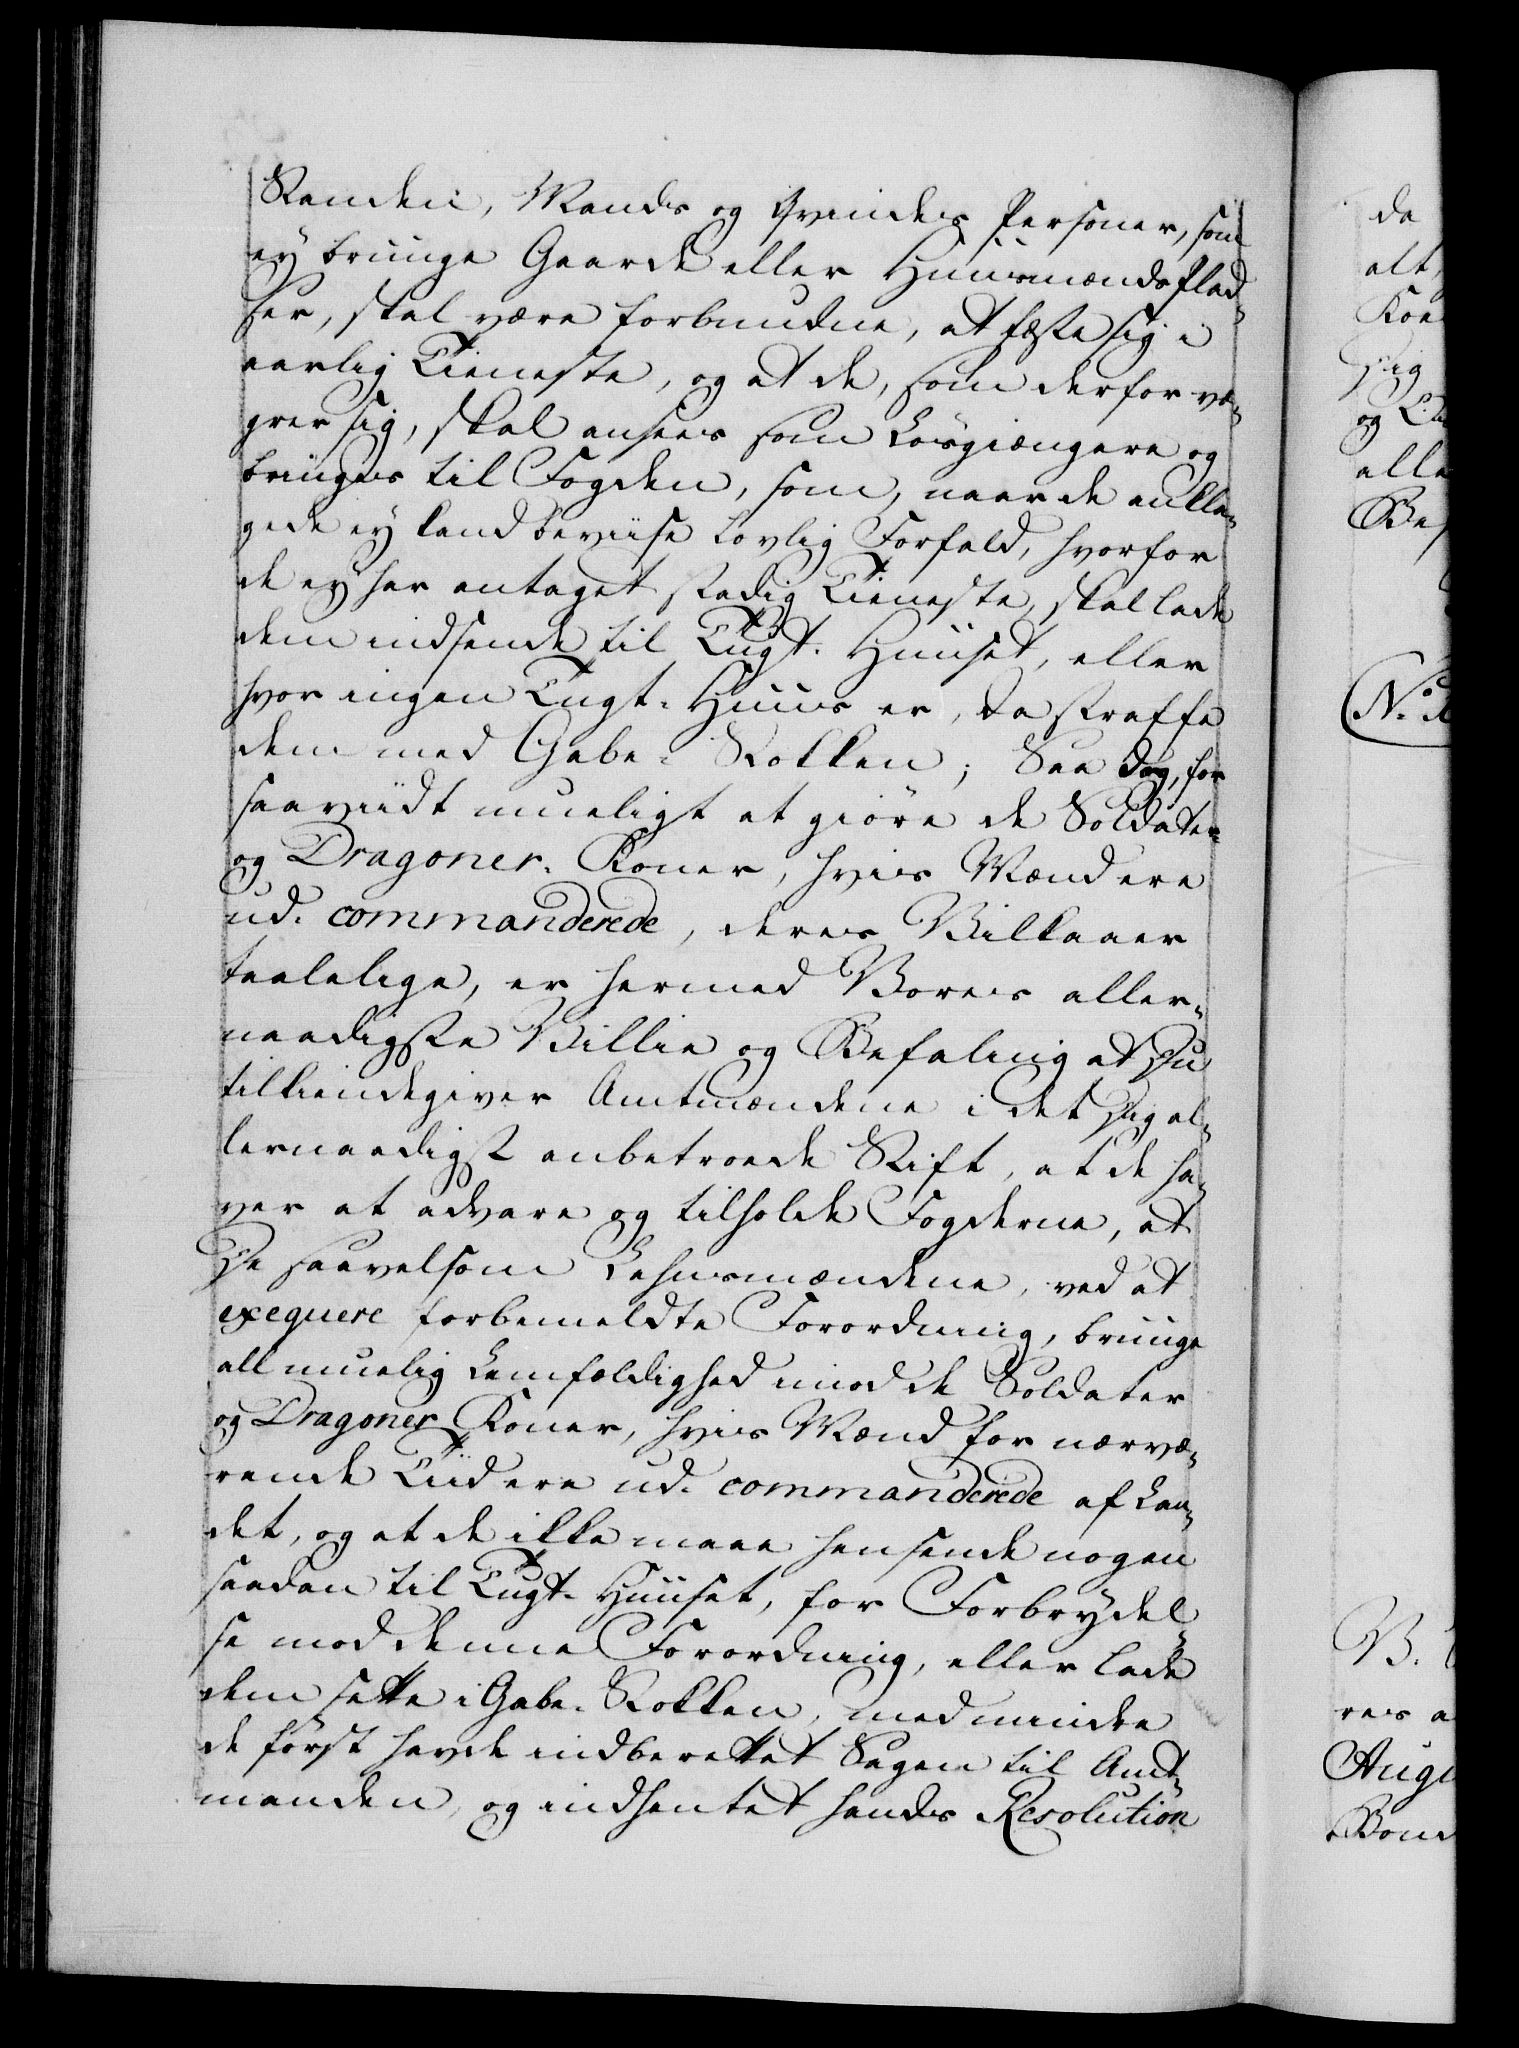 Standen, Mands og Qvindes Personer, som
ey bruuge Gaarde eller Huusmænds Plad-
ser, skal være forbundne, at fæste sig i
aarlig Tieneste, og at de, som derfor væ-
grer sig, skal ansees som Løsgiængere og
bringes til Fogden, som, naar de ankla-
gede ey kand beviise lovlig Forfald, hvorfor
de ey har antaget stadig Tieneste, skal lade
dem indsende til Tugt-Huuset, eller
hvor ingen Tugt-Huus er, da straffe
dem med Gabe-Stokken; Saa dog, for
saaviidt mueligt at giøre de Soldater
og Dragoner-Koner, hvis Mænd ere
ud-commanderede, deres Vilkaaer
taalelige, er hermed Vores aller-
naadigste Villie og Befaling at Du
tilkiendegiver Amtmændene i det Dig al-
lernaadigst anbetroede Stift, at de ha-
ver at advare og tilholde Fogderne, at
De saavelsom Lehnsmændene, ved at
exequere forbemeldte Forordning, bruuge
all muelig Lemfældighed mod de Soldater
og Dragoner Koner, hvis Mænd for nærvæ-
rende Tiid ere ud-commanderede af Lan-
det, og at de ikke maae hensende nogen
saadan til Tugt-Huuset, for Forbrydel-
se mod denne Forordning, eller lade
dem sette i Gabe-Stokken, med mindre
de først havde indberettet Sagen til Amt-
manden, og indhentet hands Resolution
da
alt,
og
alle
N.
res a